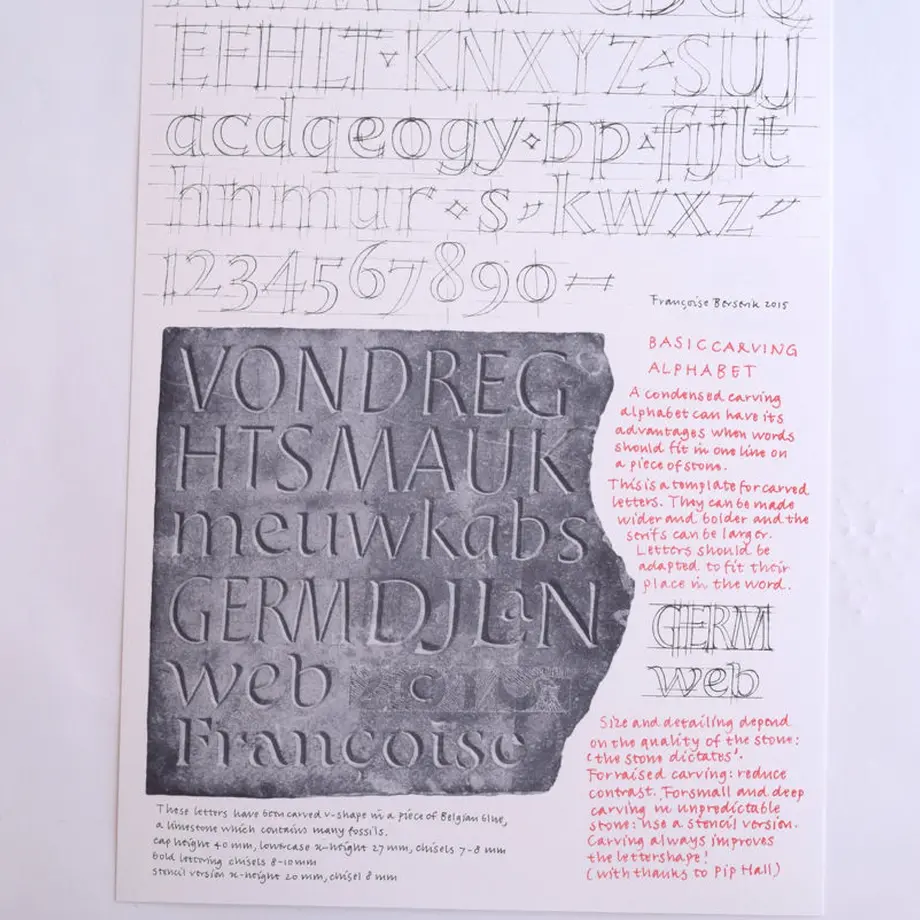 EFHLT KNXYZ SUJ
acdqeogy bp fijlt
hnmur s kwxz
1234567890
Françoise Berserik 2015
VONDREG
HTSMAUK
meuwkabs
GERMDJLaN
web
Françoise
BASIC CARVING
ALPHABET
A condensed carving
alphabet can have its
advantages when words
should fit in one line on
a piece of stone.
This is a template for carved
letters. They can be made
wider and bolder and the
serifs can be larger.
Letters should be
adapted to fit their
place in the word.
GERM
web
Size and detailing depend
on the quality of the stone:
'the stone dictates'.
For raised carving: reduce
contrast. For small and deep
carving in unpredictable
stone: use a stencil version.
Carving always improves
the lettershape!
(with thanks to Pip Hall)
These letters have been carved v-shape in a piece of Belgian blue,
a limestone which contains many fossils.
cap height 40 mm, lowercase x-height 27 mm, chisels 7-8 mm
bold lettering chisels 8-10 mm
stencil version x-height 20 mm, chisel 8 mm